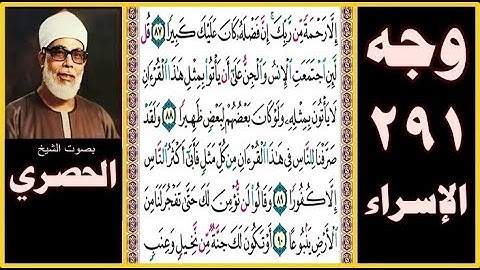 وجه
٢٩١
الإسراء
إِلَّا رَحْمَةً مِّن رَّبِّكَ ۚ إِنَّ فَضْلَهُۥ كَانَ عَلَيْكَ كَبِيرًا ٨٧ قُل
لَّئِنِ ٱجْتَمَعَتِ ٱلْإِنسُ وَٱلْجِنُّ عَلَىٰٓ أَن يَأْتُوا۟ بِمِثْلِ هَٰذَا ٱلْقُرْءَانِ
لَا يَأْتُونَ بِمِثْلِهِۦ وَلَوْ كَانَ بَعْضُهُمْ لِبَعْضٍ ظَهِيرًا ٨٨ وَلَقَدْ
صَرَّفْنَا لِلنَّاسِ فِى هَٰذَا ٱلْقُرْءَانِ مِن كُلِّ مَثَلٍ فَأَبَىٰٓ أَكْثَرُ ٱلنَّاسِ
إِلَّا كُفُورًا ٨٩ وَقَالُوا۟ لَن نُّؤْمِنَ لَكَ حَتَّىٰ تَفْجُرَ لَنَا مِنَ
ٱلْأَرْضِ يَنۢبُوعًا ٩٠ أَوْ تَكُونَ لَكَ جَنَّةٌ مِّن نَّخِيلٍ وَعِنَبٍ
بصوت الشيخ
الحصري